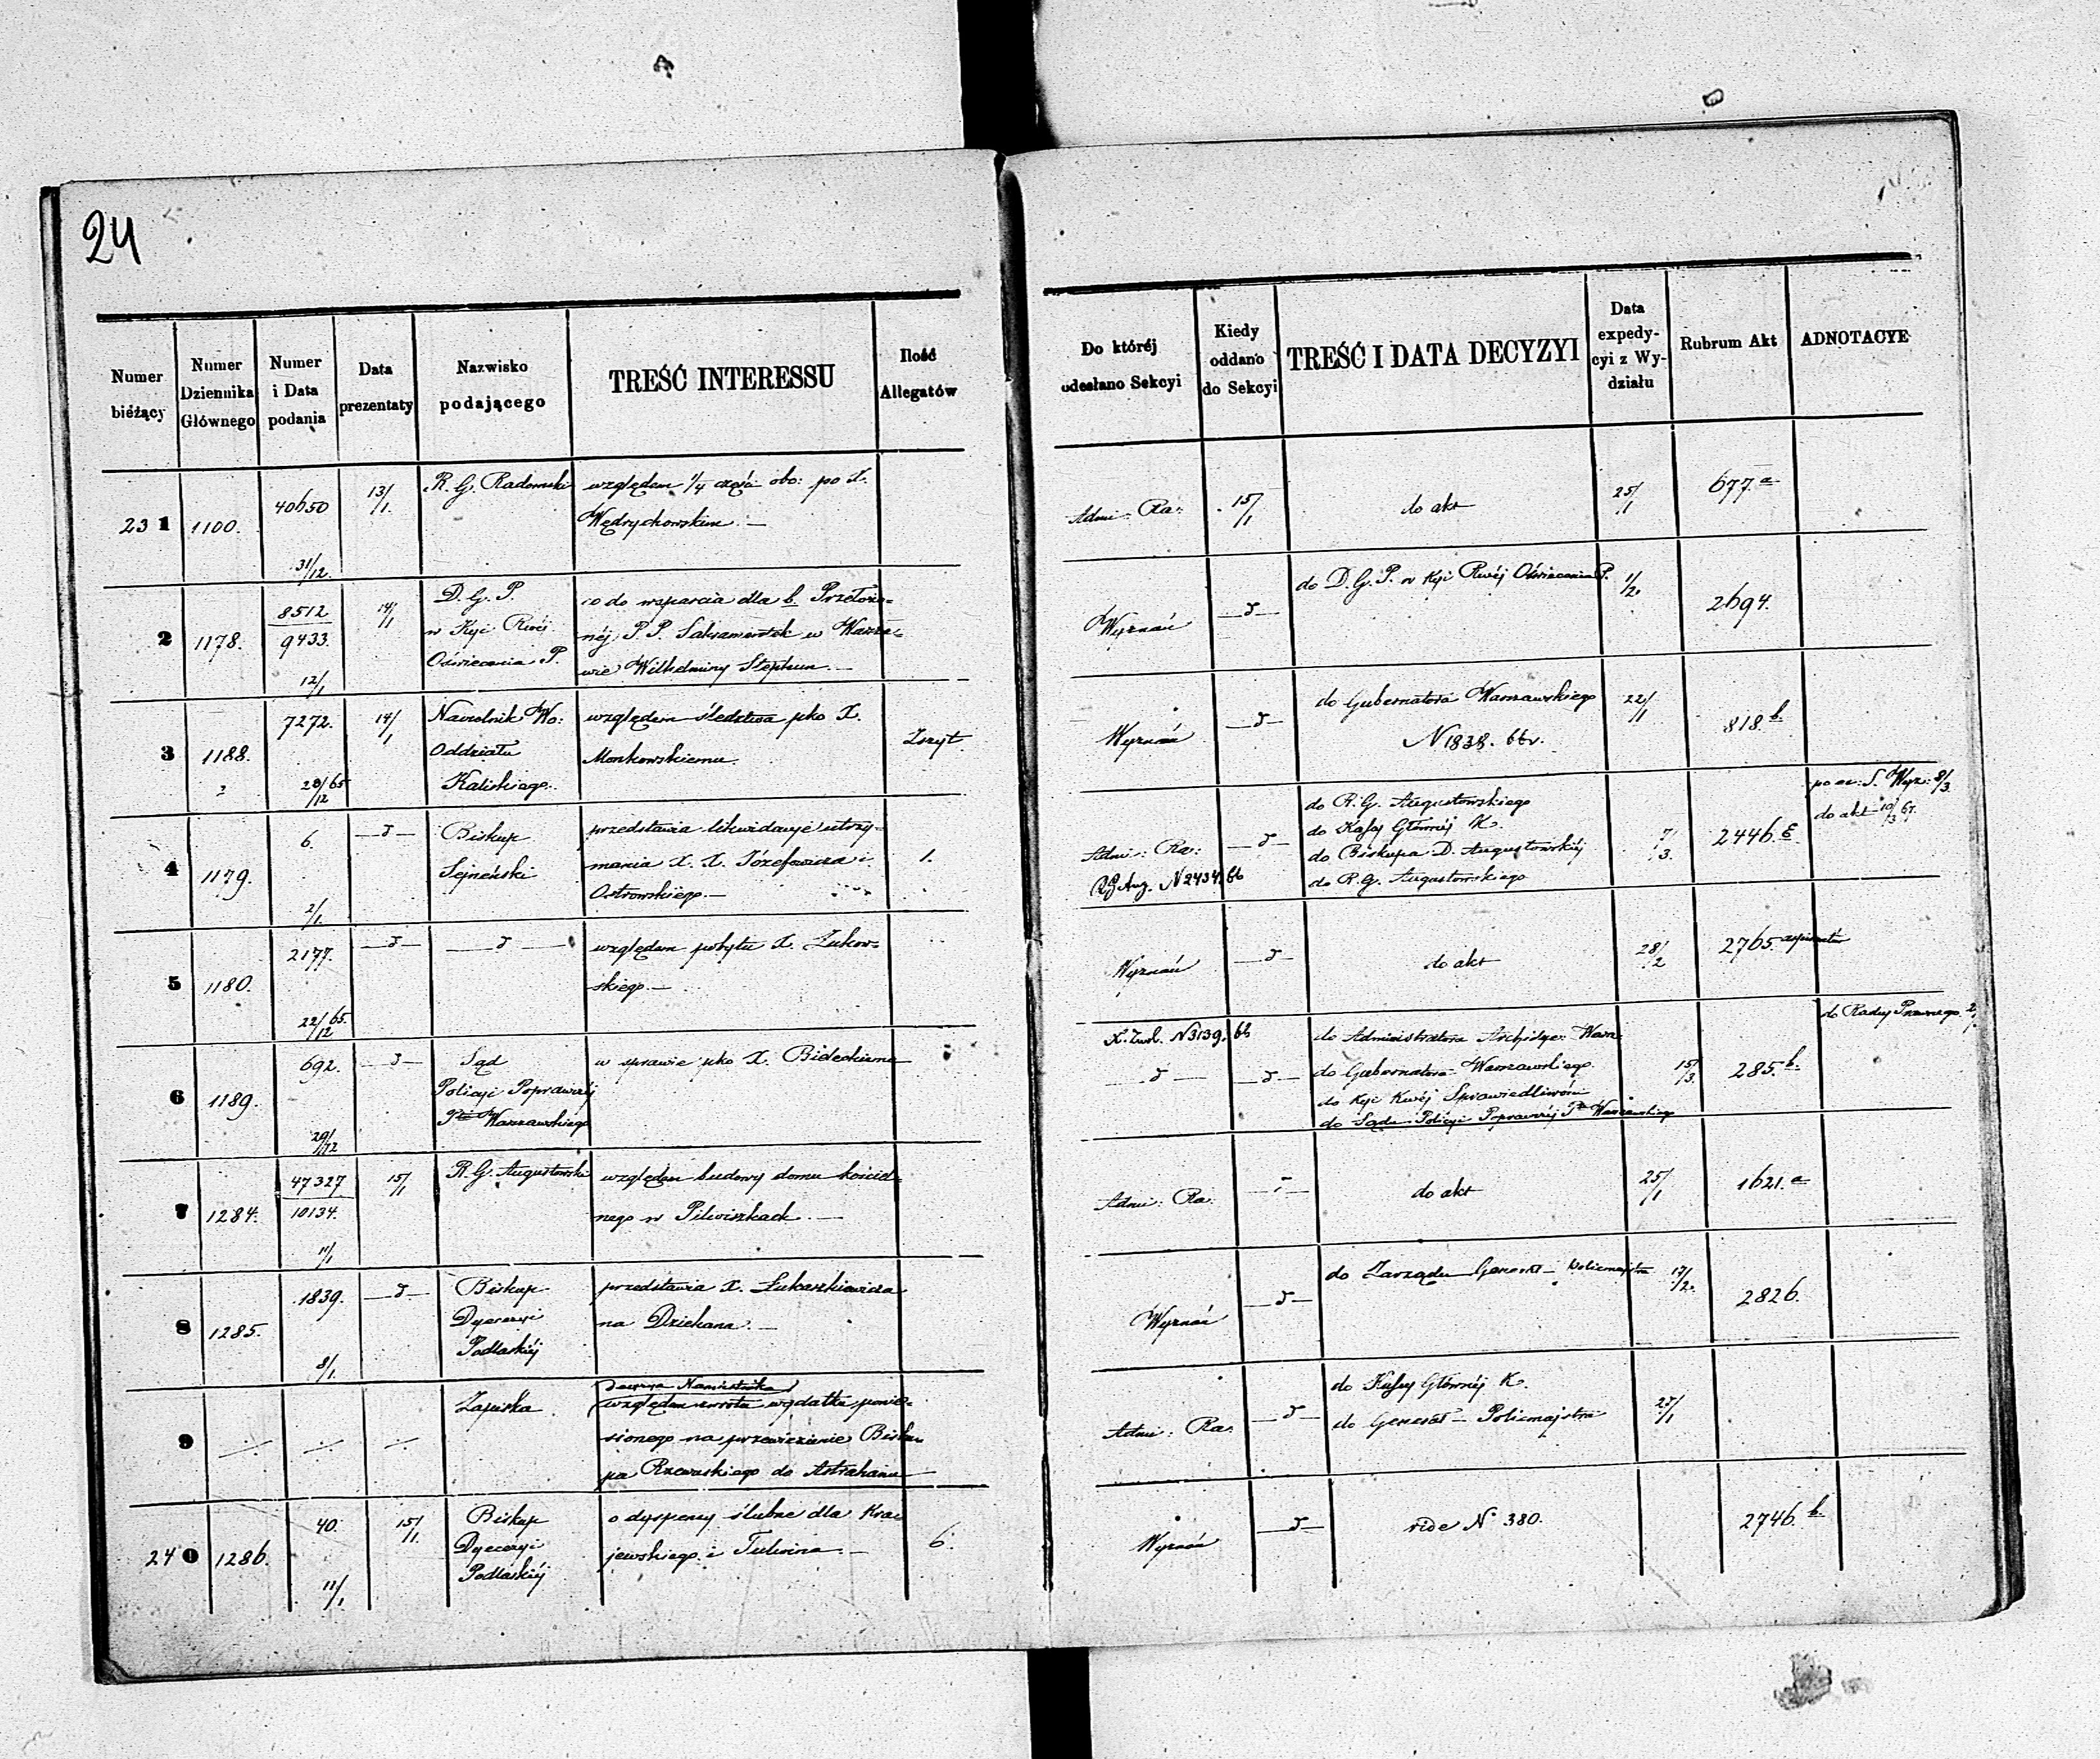 24
Numer bieżący
Numer Dziennika Głównego
Numer i Data podania
Data prezentaty
Nazwisko podającego
TREŚĆ INTERESSU
Ilość Allegatów
Do której odesłano Sekcyi
Kiedy oddano do Sekcyi
TREŚĆ I DATA DECYZYI
Data expedycyi z Wydziału
Rubrum Akt
ADNOTACYE
231 1100. 40650 31/12. 13/1. R. G. Radomski
względem 1/4 części obo: po X.
Wędrychowskim. —
Admi: Ra: 15/1 do akt 25/1 677. a
2 1178. 8512 9433. 12/1 14/1
D. G. P.
w Kyi Rwéj
Oświecenia P.
co do wsparcia dla b. Przełożo-
néj P. P. Sakramentek w Warsza-
wie Wilhelminy Stephun. —
Wyznań d do D. G. P. w Kyi Rwéj Oświecenia P. 1/2. 2694.
3 1188. 7272. 28/65 12 14/1
Naczelnik Wo:
Oddziału
Kaliskiego.
względem śledztwa pko X.
Monkowskiemu.
Zszyt
Wyznań d
do Gubernatora Warszawskiego
N 1838. 66r.
22/1 818 b.
4 1179. 6. 2/1. d
Biskup
Sejneński
przedstawia likwidacyé utrzy-
mania X. X. Józefowicza i
Ostrowskiego. —
1.
Admi: Ra:
RG Aug. N 2434. 66
d
do R. G. Augustowskiego
do Kassy Głównéj K.
do Biskupa D. Augustowskiéj
do R. G. Augustowskiego
7/3. 2446. c
S. Wyz: 8/3.
do akt 10/3 67.
5 1180. 2177. 22/65. 12 d d
względem pobytu X. Żukow-
skiego. —
Wyznań d do akt 28/2 2765
6 1189. 692. 29/12 d
Sąd
Policyi Poprawczéj
Ptu Warszawskiego
w sprawie pko X.
N 3139. 66
d d
do Administratora Archidyec: Warsz:
do Gubernatora Warszawskiego
do Kyi Rwéj Sprawiedliwości
do Sądu Policyi Poprawczéj Ptu Warszawskiego
15/3. 285. b.
do Radcy Prawnego
7 1284. 47327 10134. 11/1 15/1 R. G. Augustowski
względem budowy domu kościel-
nego w Pilwiszkach. —
Admi: Ra: do akt 25/1 1621. a
8 1285. 1839. 8/1. d
Biskup
Dyecezyi
Podlaskiéj
przedstawia X. Łukaszkiewicza
na Dziekana. —
Wyznań d do Zarządu Generał-Policmajstra 17/2. 2826.
9 Zapiska
Namiestnika
względem zwrotu wydatku ponie-
sionego na przewiezienie Bisku-
pa Rzewuskiego do Astrahania
Admi: Ra: d
do Kassy Głównéj K.
do Generał-Policmajstra
25/1
240 1286. 40. 11/1 15/1.
Biskup
Dyecezyi
Podlaskiéj
o dyspensy ślubne dla Kra-
jewskiego i Tulwina. —
6.
Wyznań d vide N° 380. 2746. b.